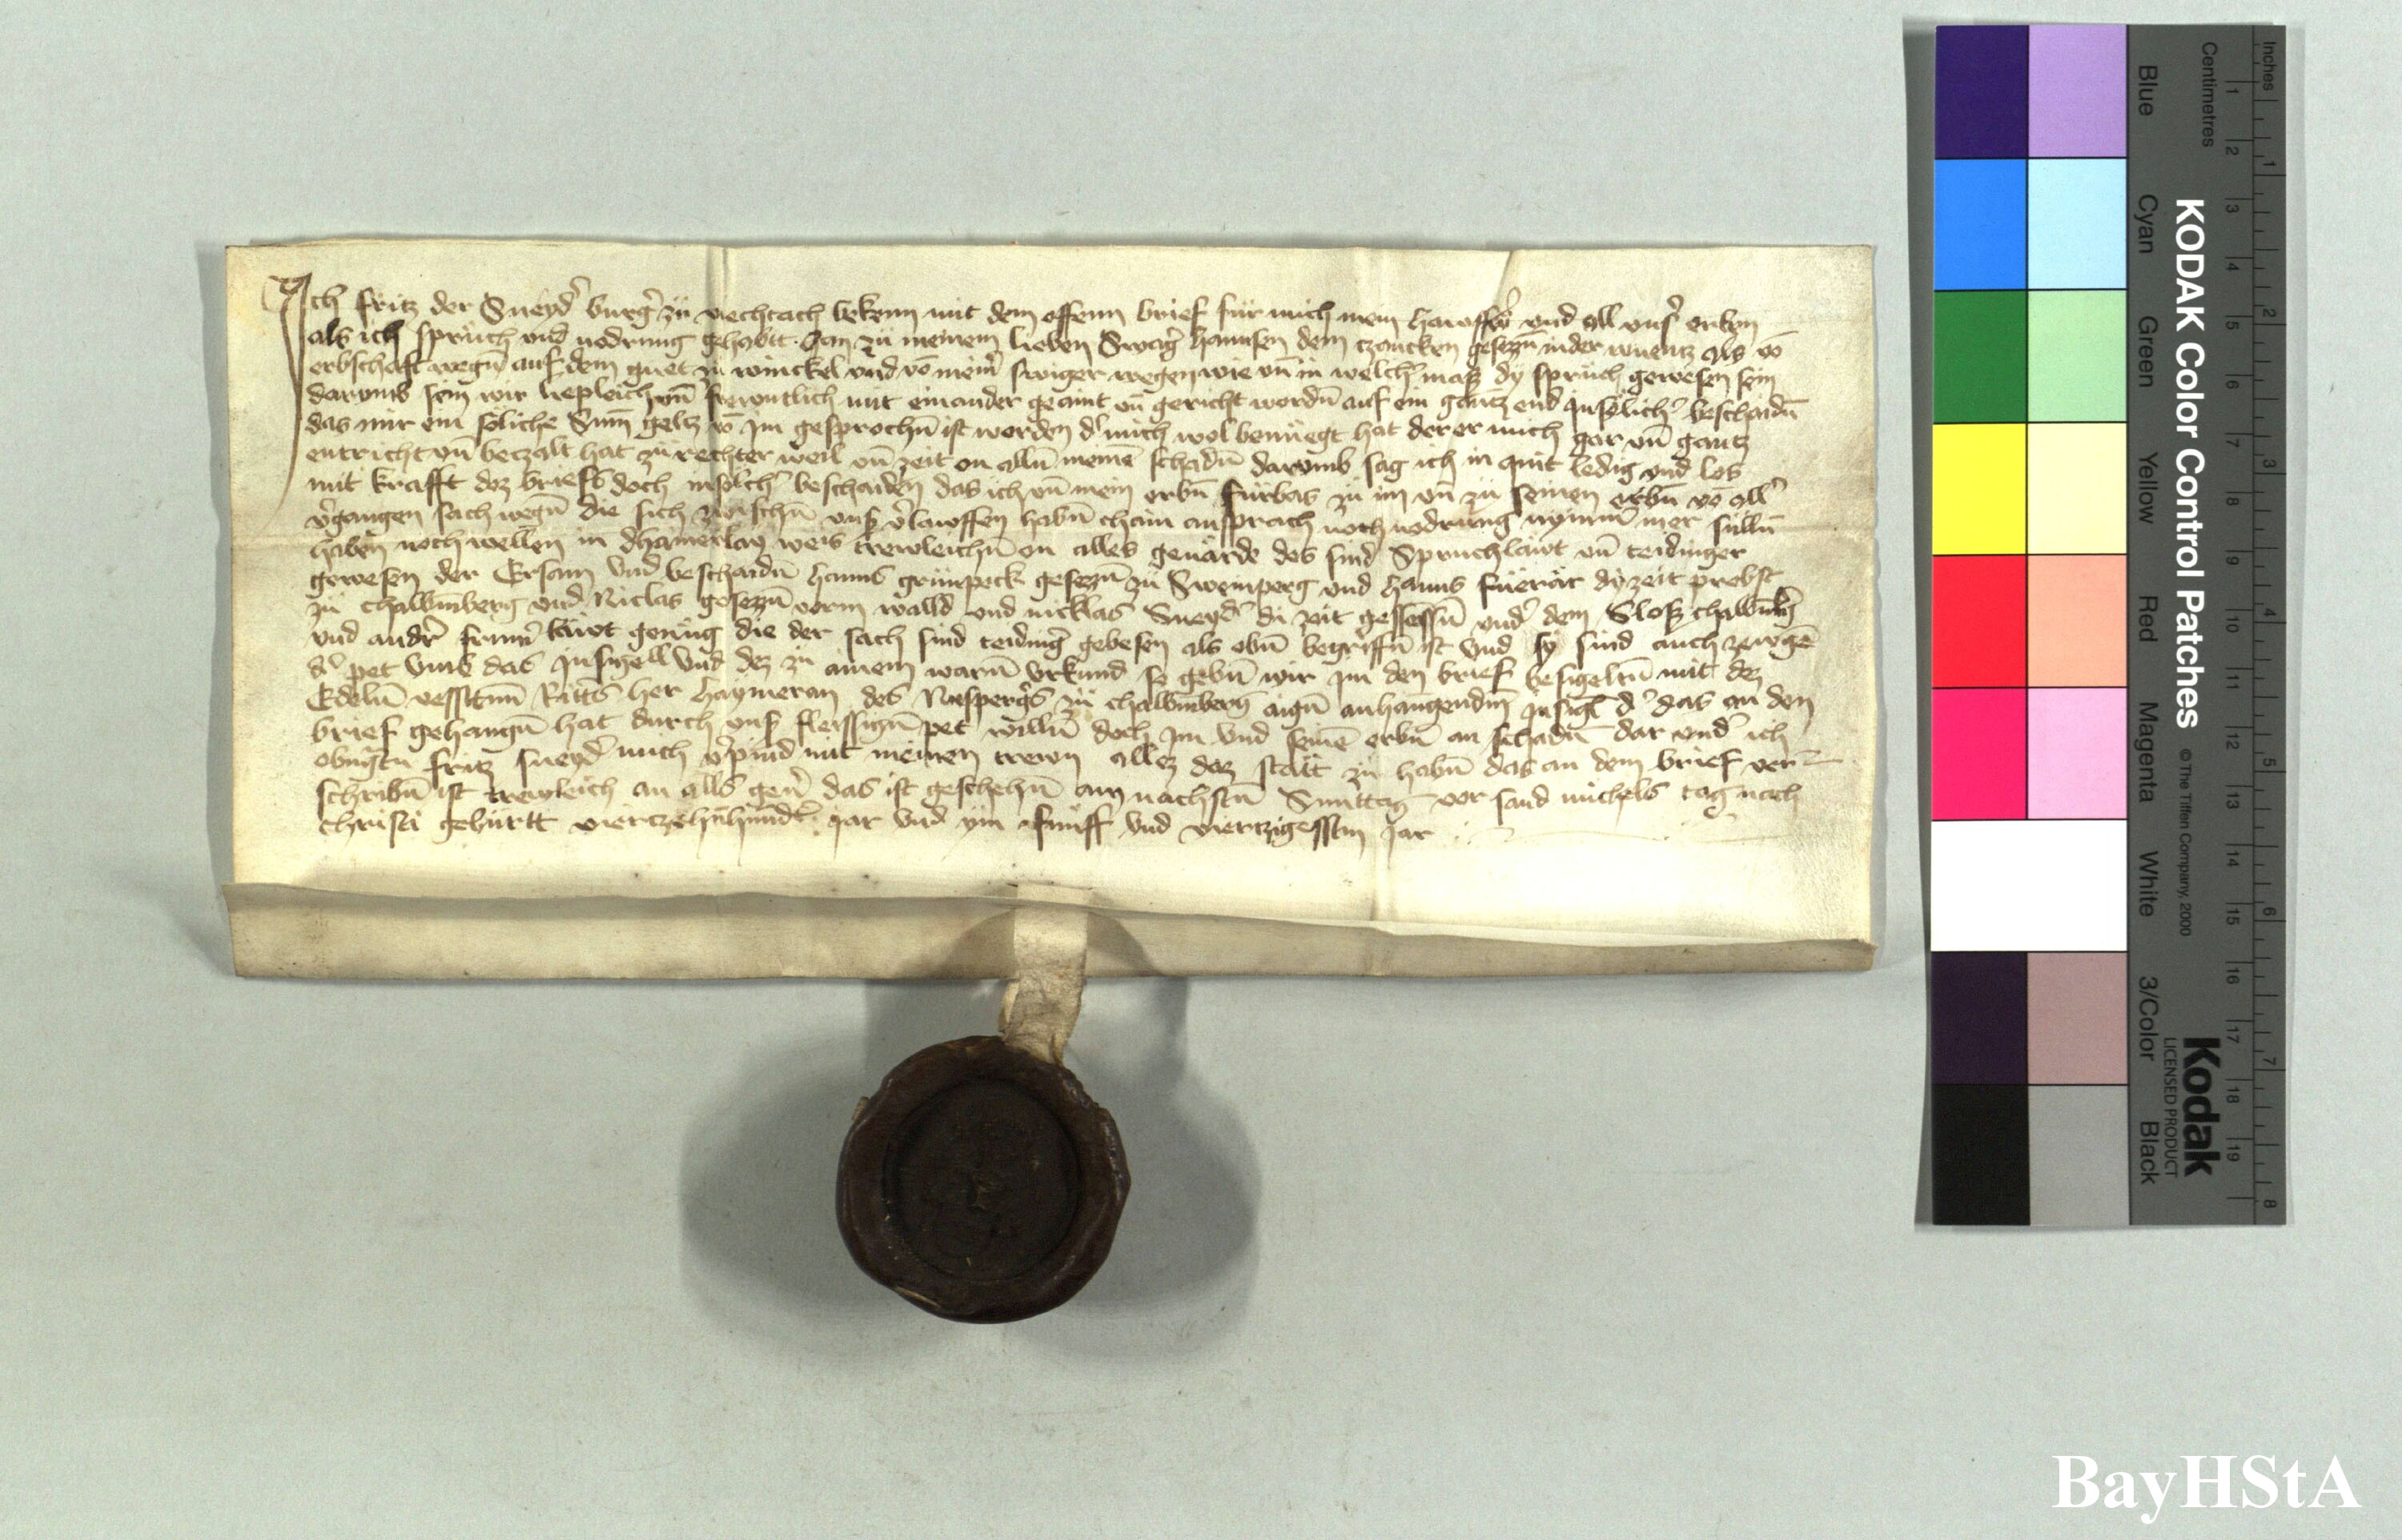 Ich fritz der Sneyd' burg' zu viechtach bekenn mit dem offenn brief für mich mein hawsfrw und all vns' erben
als ich sprüch und vodrung gehabtt han zu meinem lieben Swag' hannsen dem czaucken gesezzn̄ in der wuentz als vō
erbschafft wegn̄ auf dem guet zu winckel vnd vō mein' swiger wegen wie vn̄ in welch' mass dy sprüch gewesen sein
darvmb sein wir liepleich vn̄ frewntlich mit einander geaint vn̄ gericht wordn̄ auf ein gantz end In sölich' beschaidn̄
das mir ein soliche Sum̄ geltz vō Im gesprochn̄ ist worden d' mich wol benüegt hat der er mich gar vn̄ gantz
entricht vn̄ beczalt hat zu rechter weil vn̄ zeit on alln̄ meinē schadn̄ darvmb sag ich in quit ledig vnd los
mit krafft dez briefs doch in sölch' beschaiden das ich vn̄ mein erbn̄ fürbas zu im vn̄ zu seinen erbn̄ vō all'
v'gangen sach wegn̄ die sich zwischn̄ vns v'lawffen habn̄ chain ansprach noch vodrung nymm̄ mer sülln̄
haben noch wellen in dhainerlay weis trewleichn̄ on alles geuärde des sind Spruchläwt vn̄ teidinger
gewesen der Ersam vnd beschaidn̄ hanns grünpeck gesezzn̄ zu Swemperg vnd hanns füerär dy zeit probst
zu chalbmberg vnd Niclas gesezzn̄ vorm walld vnd nicklas Sneyd' di zeit gessessn̄ vnd' dem Slosz chalbmb'g
vnd and'r frum' läwt genüg die der sach sind teiding' gebesen als obn̄ begriffn̄ ist vnd sy sind auch zewgē
d' pet vmb das Insigell vnd dez zu ainem warn̄ vrkund so gebn̄ wir Im den brief besigeltn̄ mit dez
Edeln̄ vesstnn̄ Ritt's her haymeran des Nuesperg's zu chalbmberg aign̄ anhangendm̄ Insigl d' das an den
brief gehangn̄ hat durch vns fleissign̄ pet willn̄ doch Im vnd seinē erbn̄ an schadn̄ dar vnd' ich
obngn̄ fritz sneyd' mich v'pind mit meinen trewn allez daz stätt zu habn̄ das an dem brief ver
schribn̄ ist trewleich an alls geu' das ist geschehn̄ am nachstn̄ Sunttag vor sand michels tag nach
christi gebürtt vierczehn̄hundt' Jar vnd ym funff vnd viertzigesstm̄ Jar
Inches
Centimetres
Blue Cyan Green Yellow Red Magenta White 3/Color Black
KODAK Color Control Patches
© The Tiffen Company, 2000
Kodak
LICENSED PRODUCT
1 2 3 4 5 6 7 8 9 10 11 12 13 14 15 16 17 18 19
1 2 3 4 5 6 7 8
BayHStA